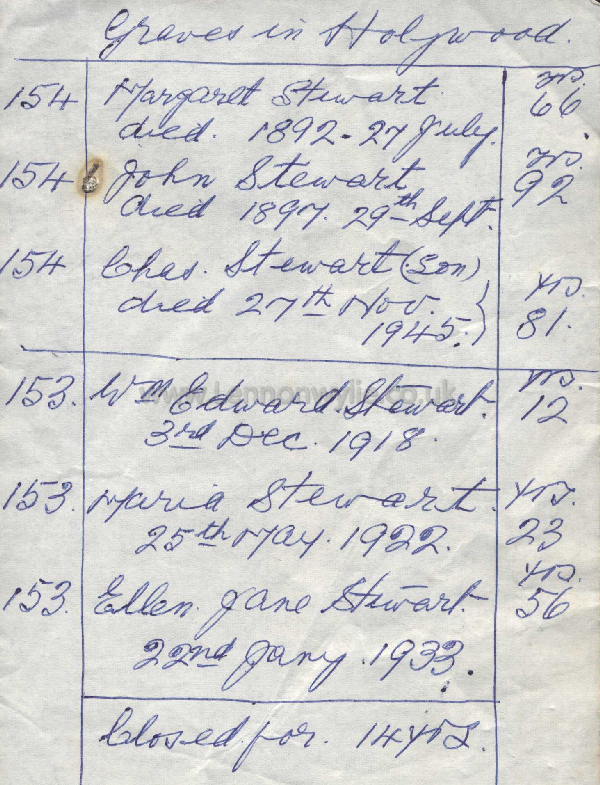 Graves in Holywood.
154 Margaret Stewart yrs.
died. 1892 - 27 July. 66
154 John Stewart yrs.
died 1897. 29th Sept. 92
154 Chas. Stewart (Son)
died 27th Nov. yrs.
1945. 81.
153. Wm Edward Stewart. yrs.
3rd Dec. 1918. 12
www.Lennonwylie.co.uk
153. Maria Stewart. yrs.
25th May. 1922. 23
153. Ellen Jane Stewart. yrs.
22nd Jany. 1933. 56
Closed for. 14 yrs.